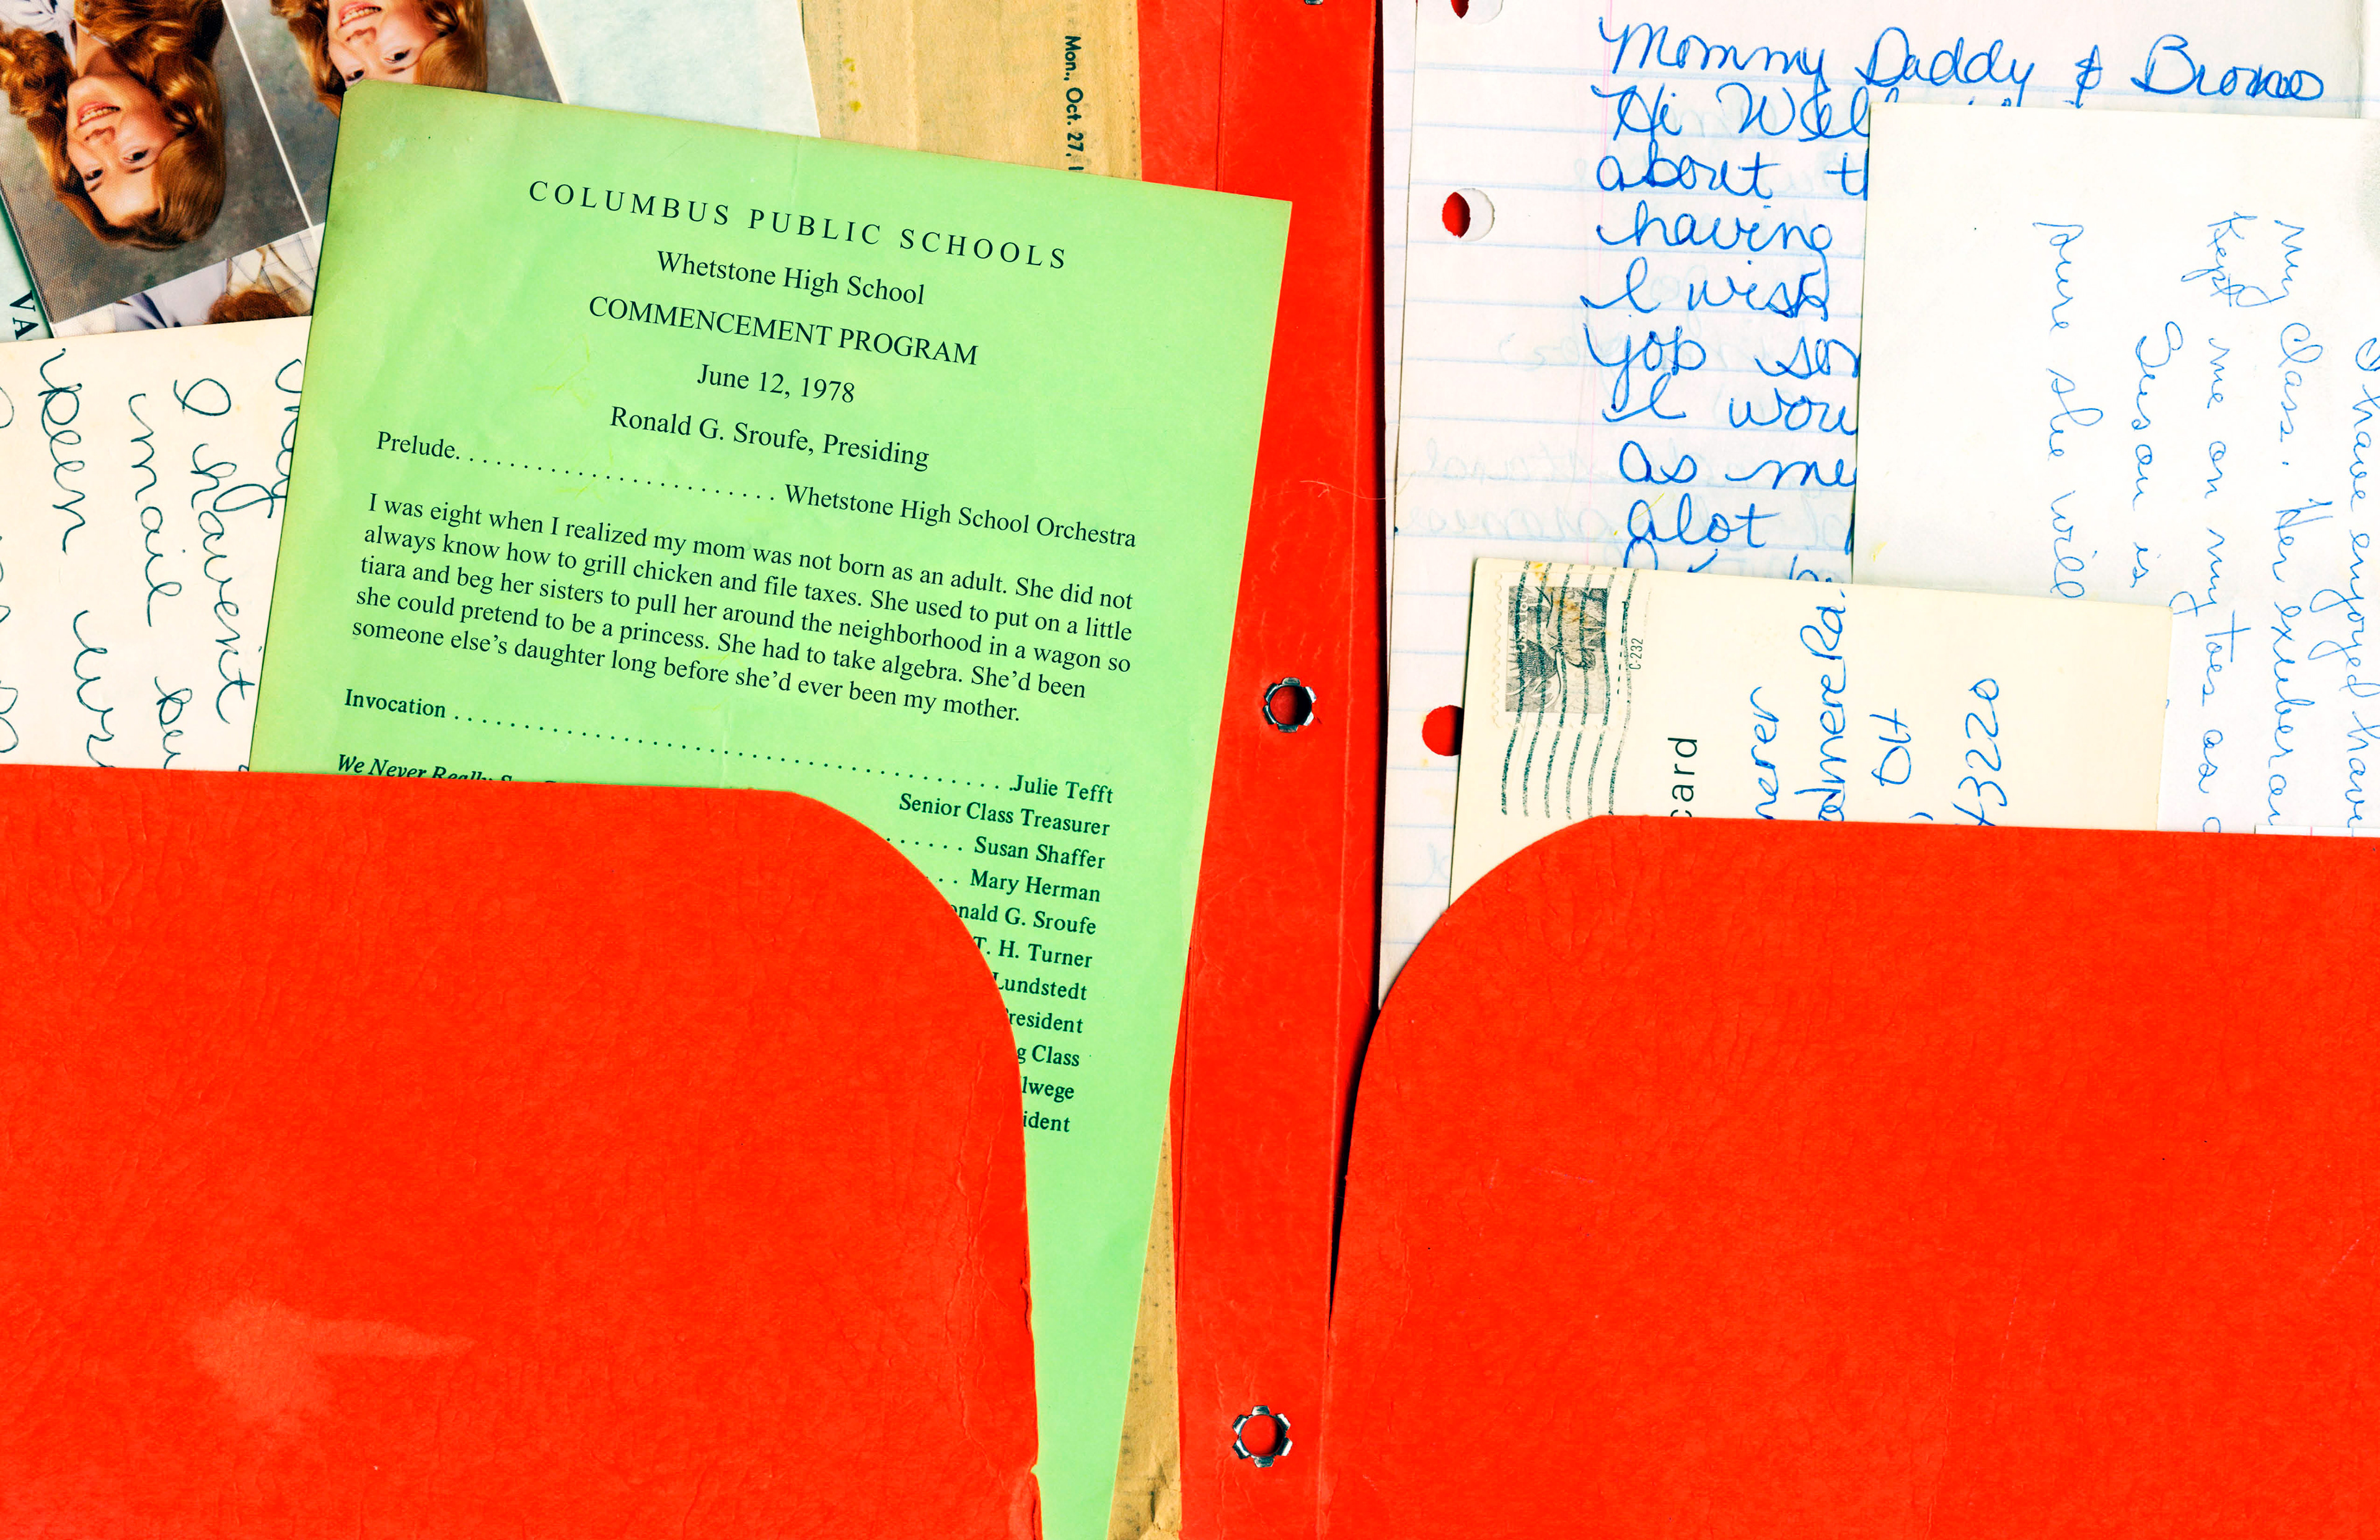 Mon., Oct. 27, 1
COLUMBUS PUBLIC SCHOOLS
Whetstone High School
COMMENCEMENT PROGRAM
June 12, 1978
Ronald G. Sroufe, Presiding
Prelude. . . . . . . . . . . . . . . . . . . . . . . . Whetstone High School Orchestra
I was eight when I realized my mom was not born as an adult. She did not
always know how to grill chicken and file taxes. She used to put on a little
tiara and beg her sisters to pull her around the neighborhood in a wagon so
she could pretend to be a princess. She had to take algebra. She’d been
someone else’s daughter long before she’d ever been my mother.
Invocation . . . . . . . . . . . . . . . . . . . . . . . . . . . . . . . . . . . . . . . . .Julie Tefft
Senior Class Treasurer
We Never Really
. . . . . . Susan Shaffer
. . Mary Herman
onald G. Sroufe
T. H. Turner
Lundstedt
resident
g Class
lwege
ident
VA
I havent
mail
been
Mommy Daddy &
Hi Well
about th
having
I wish
I wou
as my
alot
I have enjoyed have
my class. Her exuberan
kept me on my toes as
Susan is
sure she will
C-232
card
OH
43220